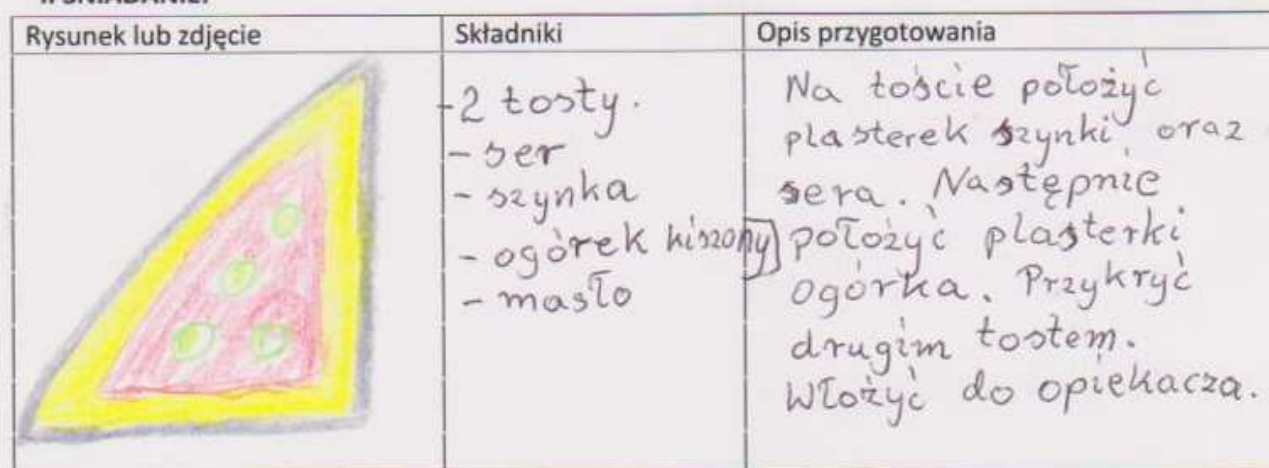 II ŚNIADANIE:
Rysunek lub zdjęcie
Składniki
Opis przygotowania
-2 tosty.
- ser
- szynka
- ogórek kiszony
- masło
Na toście położyć
plasterek szynki oraz
sera. Następnie
położyć plasterki
ogórka. Przykryć
drugim tostem.
Włożyć do opiekacza.